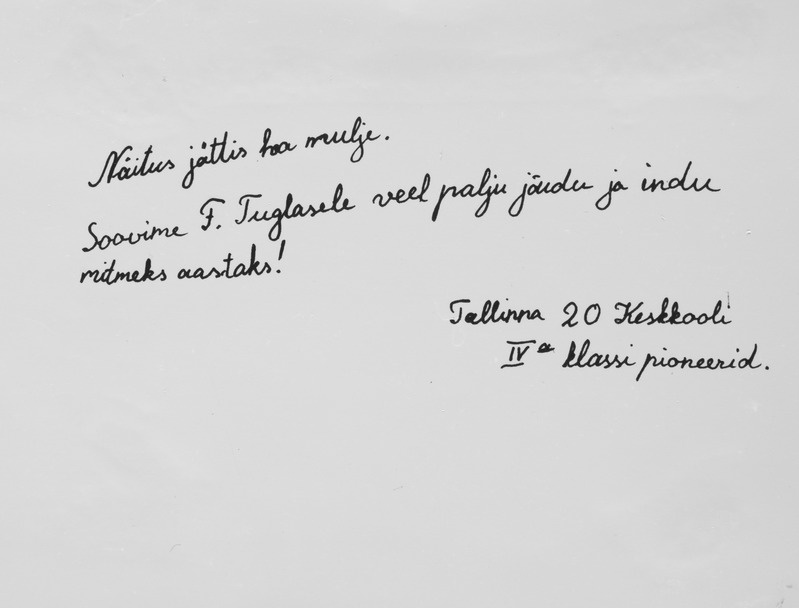 Näitus jättis hea mulje.
Soovime F. Tuglasele veel palju jõudu ja indu
mitmeks aastaks!
Tallinna 20 Keskkooli
IVa klassi pioneerid.